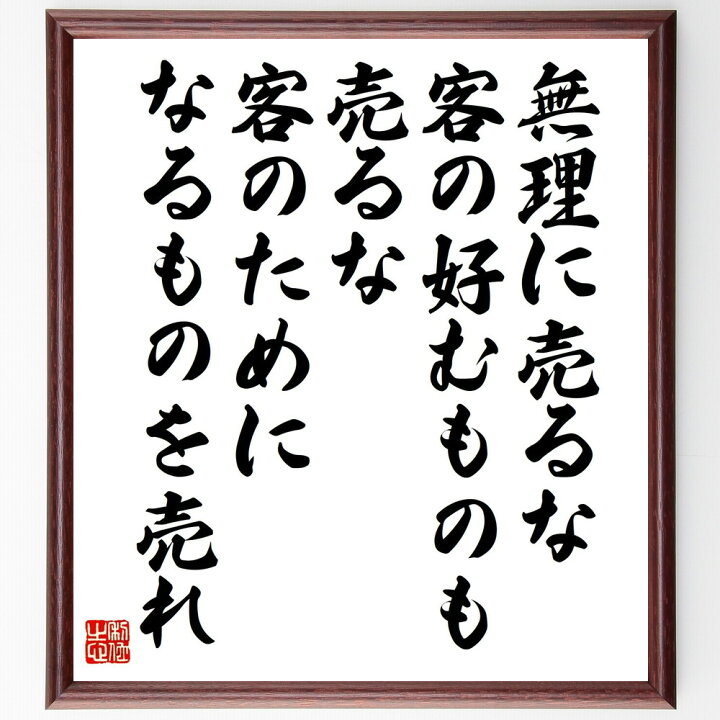 無理に売るな
客の好むものも
売るな
客のために
なるものを売れ